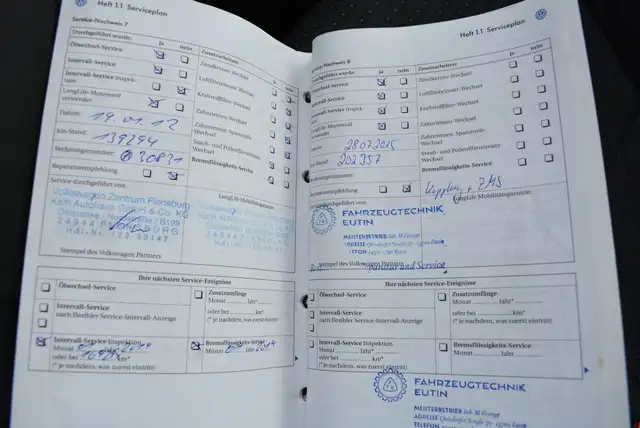 Heft 1.1 Serviceplan
Service-Nachweis 7
Durchgeführt wurde: ja nein Zusatzarbeiten: ja nein
Ölwechsel-Service
Intervall-Service
Intervall-Service Inspektion
LongLife-Motorenöl verwendet
Datum: 19.01.12
km-Stand: 139294
Rechnungsnummer: 30831
Reparaturempfehlung
Zündkerzen-Wechsel
Luftfiltereinsatz-Wechsel
Kraftstofffilter-Wechsel
Zahnriemen-Wechsel
Zahnriemen, Spannrolle-Wechsel
Staub- und Pollenfiltereinsatz-Wechsel
Bremsflüssigkeits-Service
Service durchgeführt von:
LongLife Mobilitätsgarantie
Volkswagen Zentrum Flensburg
Kath Autohaus GmbH & Co. KG
24944 FLENSBURG
Stempel des Volkswagen Partners
Ihre nächsten Service-Ereignisse
Ölwechsel-Service
Intervall-Service
nach flexibler Service-Intervall-Anzeige
Intervall-Service Inspektion
Monat Jahr*
oder bei km*
(* je nachdem, was zuerst eintritt)
Zusatzumfänge
Monat Jahr*
oder bei km*
(* je nachdem, was zuerst eintritt)
Bremsflüssigkeits-Service
Monat Jahr 2014
Heft 1.1 Serviceplan
Service-Nachweis 8
Durchgeführt wurde: ja nein Zusatzarbeiten: ja nein
Ölwechsel-Service
Intervall-Service
Intervall-Service Inspektion
LongLife-Motorenöl verwendet
Datum: 28.07.2015
km-Stand: 202 357
Rechnungsnummer:
Reparaturempfehlung
Zündkerzen-Wechsel
Luftfiltereinsatz-Wechsel
Kraftstofffilter-Wechsel
Zahnriemen-Wechsel
Zahnriemen, Spannrolle-Wechsel
Staub- und Pollenfiltereinsatz-Wechsel
Bremsflüssigkeits-Service
LongLife Mobilitätsgarantie
FAHRZEUGTECHNIK
EUTIN
MEISTERBETRIEB
ADRESSE
TELEFON
Stempel des Volkswagen Partners
Ihre nächsten Service-Ereignisse
Ölwechsel-Service
Intervall-Service
nach flexibler Service-Intervall-Anzeige
Intervall-Service Inspektion
Monat Jahr*
oder bei km*
(* je nachdem, was zuerst eintritt)
Zusatzumfänge
Monat Jahr*
oder bei km*
(* je nachdem, was zuerst eintritt)
Bremsflüssigkeits-Service
Monat Jahr
FAHRZEUGTECHNIK
EUTIN
MEISTERBETRIEB
ADRESSE
TELEFON